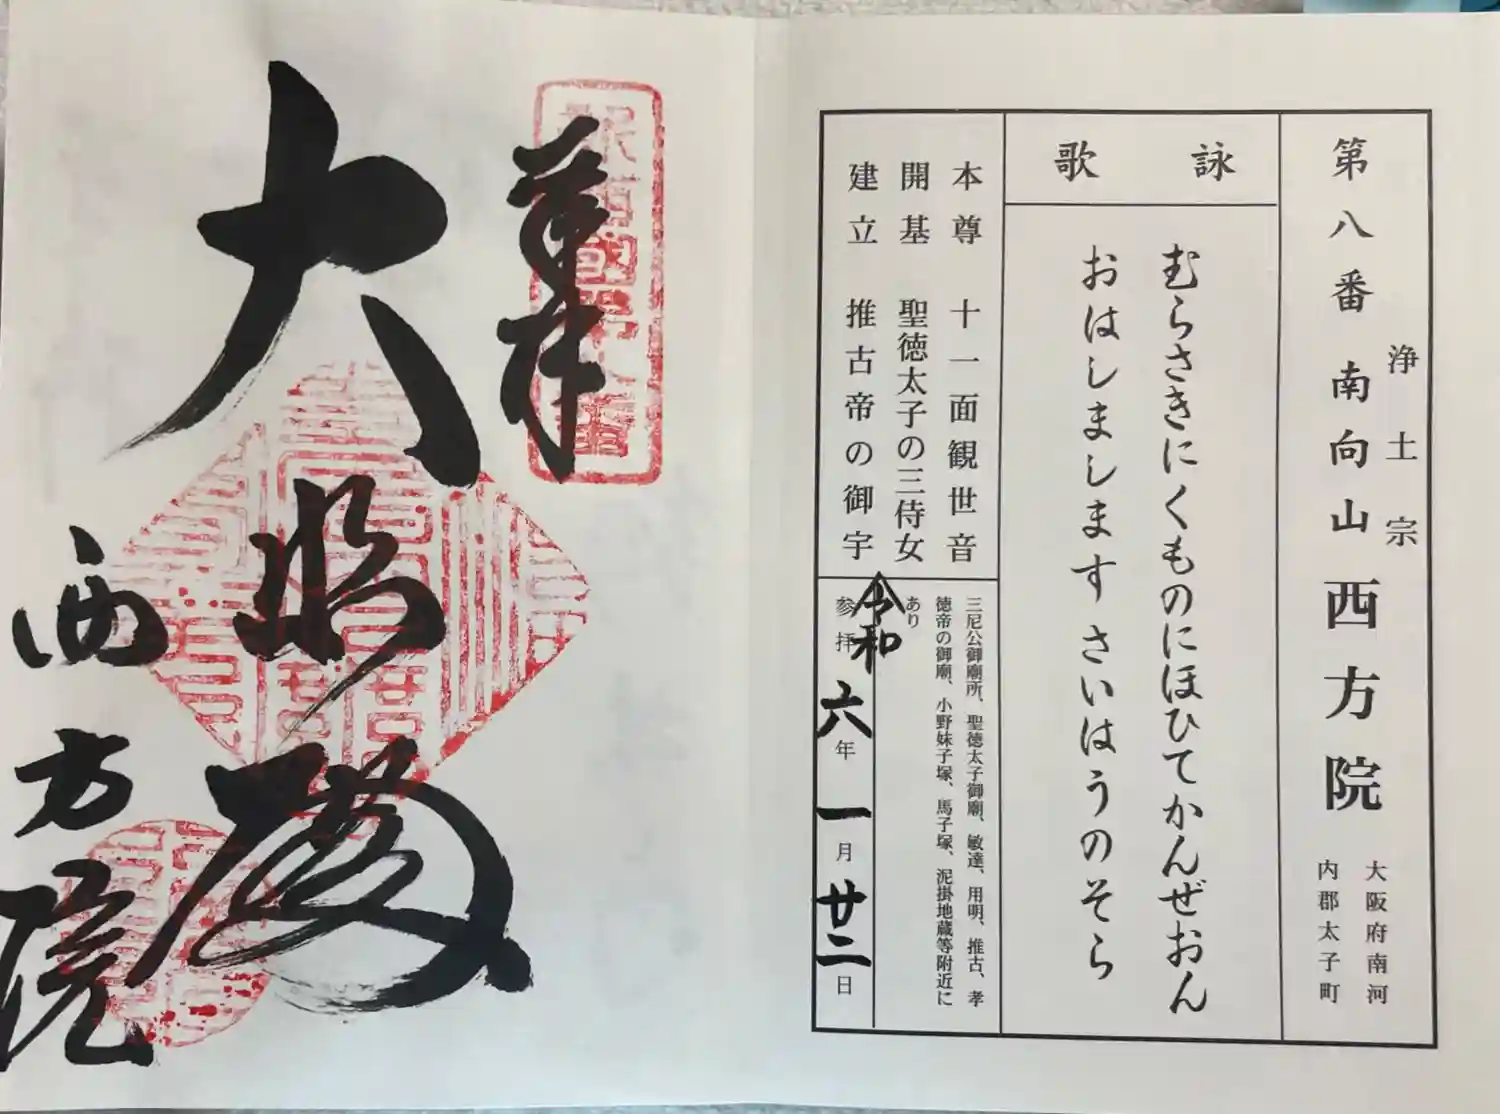 浄土宗
第八番 南向山 西方院
大阪府南河
内郡太子町
詠歌
むらさきにくものにほひてかんぜおん
おはしまします さいはうのそら
本尊 十一面観世音
開基 聖徳太子の三侍女
建立 推古帝の御宇
三尼公御廟所、聖徳太子御廟、敏達、用明、推古、孝
徳帝の御廟、小野妹子塚、馬子塚、泥掛地蔵等附近に
あり
令和
参拝 六年 一月 廿二日
奉拝
大悲殿
西方院